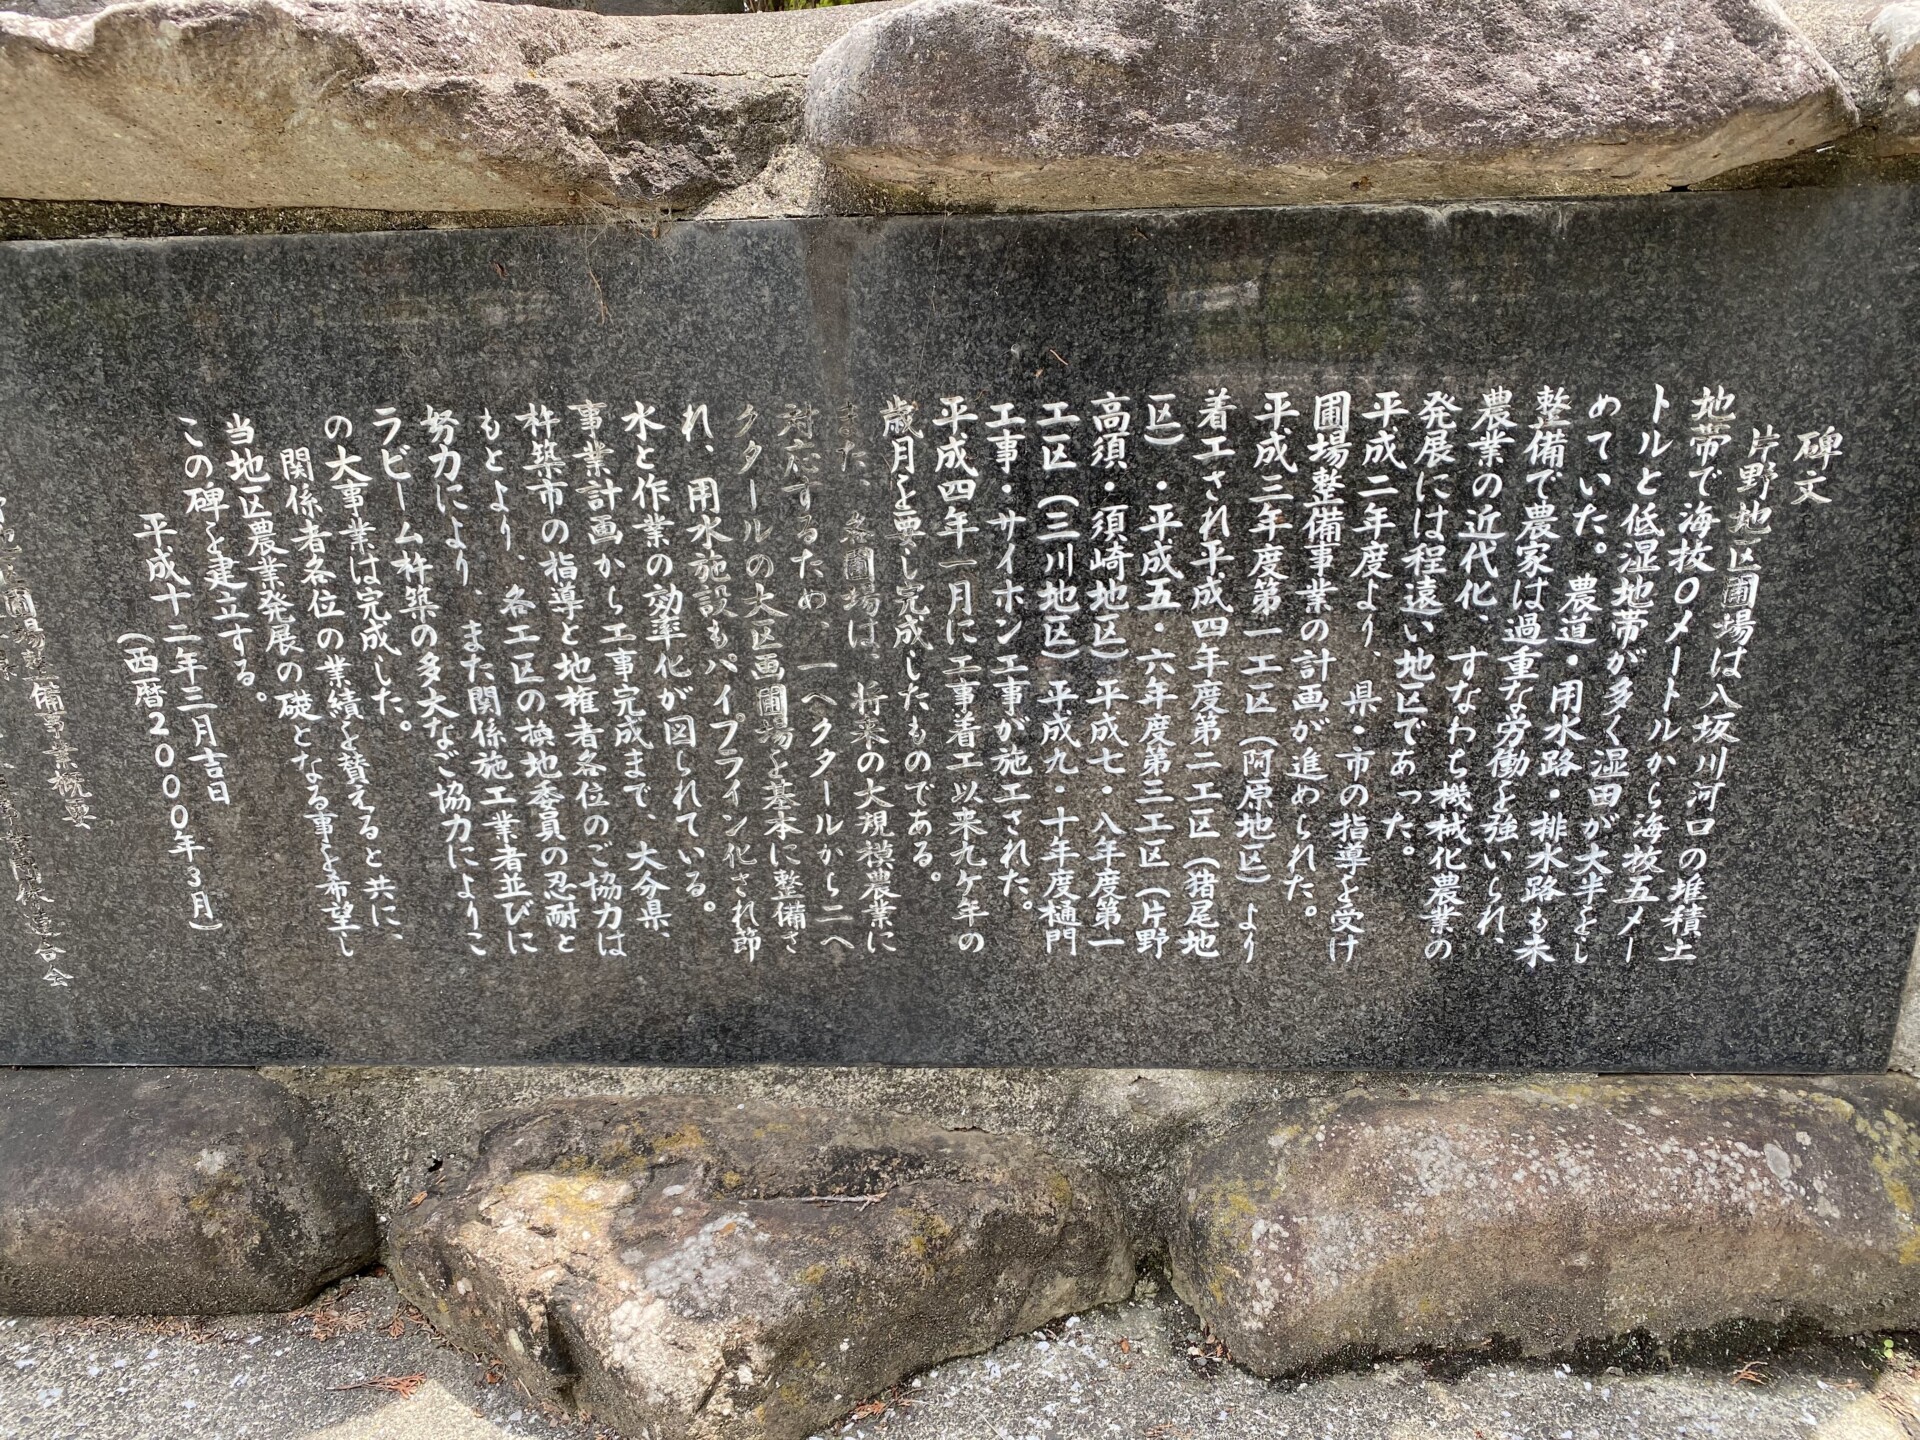 碑文
片野地区圃場は八坂川河口の堆積土
地帯で海抜0メートルから海抜五メー
トルと低湿地帯が多く湿田が大半をし
めていた。農道・用水路・排水路も未
整備で農家は過重な労働を強いられ、
農業の近代化、すなわち機械化農業の
発展には程遠い地区であった。
平成二年度より、県・市の指導を受け
圃場整備事業の計画が進められた。
平成三年度第一工区(阿原地区)より
着工され平成四年度第二工区(猪尾地
区)・平成五・六年度第三工区(片野
高須・須崎地区)平成七・八年度第一
工区(三川地区)平成九・十年度樋門
工事・サイホン工事が施工された。
平成四年一月に工事着工以来九ケ年の
歳月を要し完成したものである。
また、各圃場は、将来の大規模農業に
対応するため、一ヘクタールから二ヘ
クタールの大区画圃場を基本に整備さ
れ、用水施設もパイプライン化され節
水と作業の効率化が図られている。
事業計画から工事完成まで、大分県、
杵築市の指導と地権者各位のご協力は
もとより、各工区の換地委員の忍耐と
努力により、また関係施工業者並びに
ラビーム杵築の多大なご協力によりこ
の大事業は完成した。
関係者各位の業績を賛えると共に、
当地区農業発展の礎となる事を希望し
この碑を建立する。
平成十二年三月吉日
(西暦2000年3月)
圃場整備事業概要
連合会